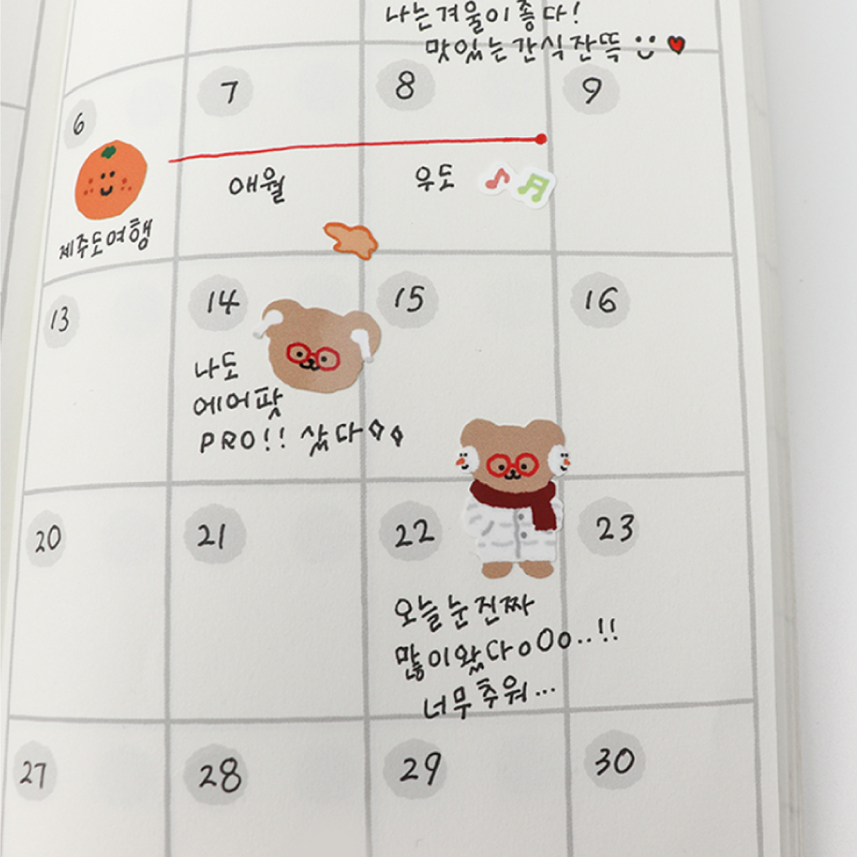 나는겨울이좋다!
맛있는간식잔뜩
6
7
8
9
제주도여행
애월
우도
13
14
15
16
나도
에어팟
PRO!! 샀다
20
21
22
23
오늘눈진짜
많이왔다oOo..!!
너무추워...
27
28
29
30